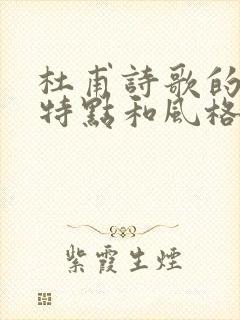 杜甫詩歌的
特點和風格
紫霞生煙